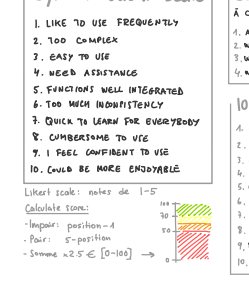 1. LIKE TO USE FREQUENTLY
2. TOO COMPLEX
3. EASY TO USE
4. NEED ASSISTANCE
5. FUNCTIONS WELL INTEGRATED
6. TOO MUCH INCONSISTENCY
7. QUICK TO LEARN FOR EVERYBODY
8. CUMBERSOME TO USE
9. I FEEL CONFIDENT TO USE
10. COULD BE MORE ENJOYABLE
Likert scale: notes de 1-5
Calculate score:
- Impair: position-1
- Pair: 5-position
- Somme x2.5 € [0-100] →
100
70
50
0
À C
1.
2.
3.
4.
10
1.
2.
3.
4.
5.
6.
7.
8.
9.
10.